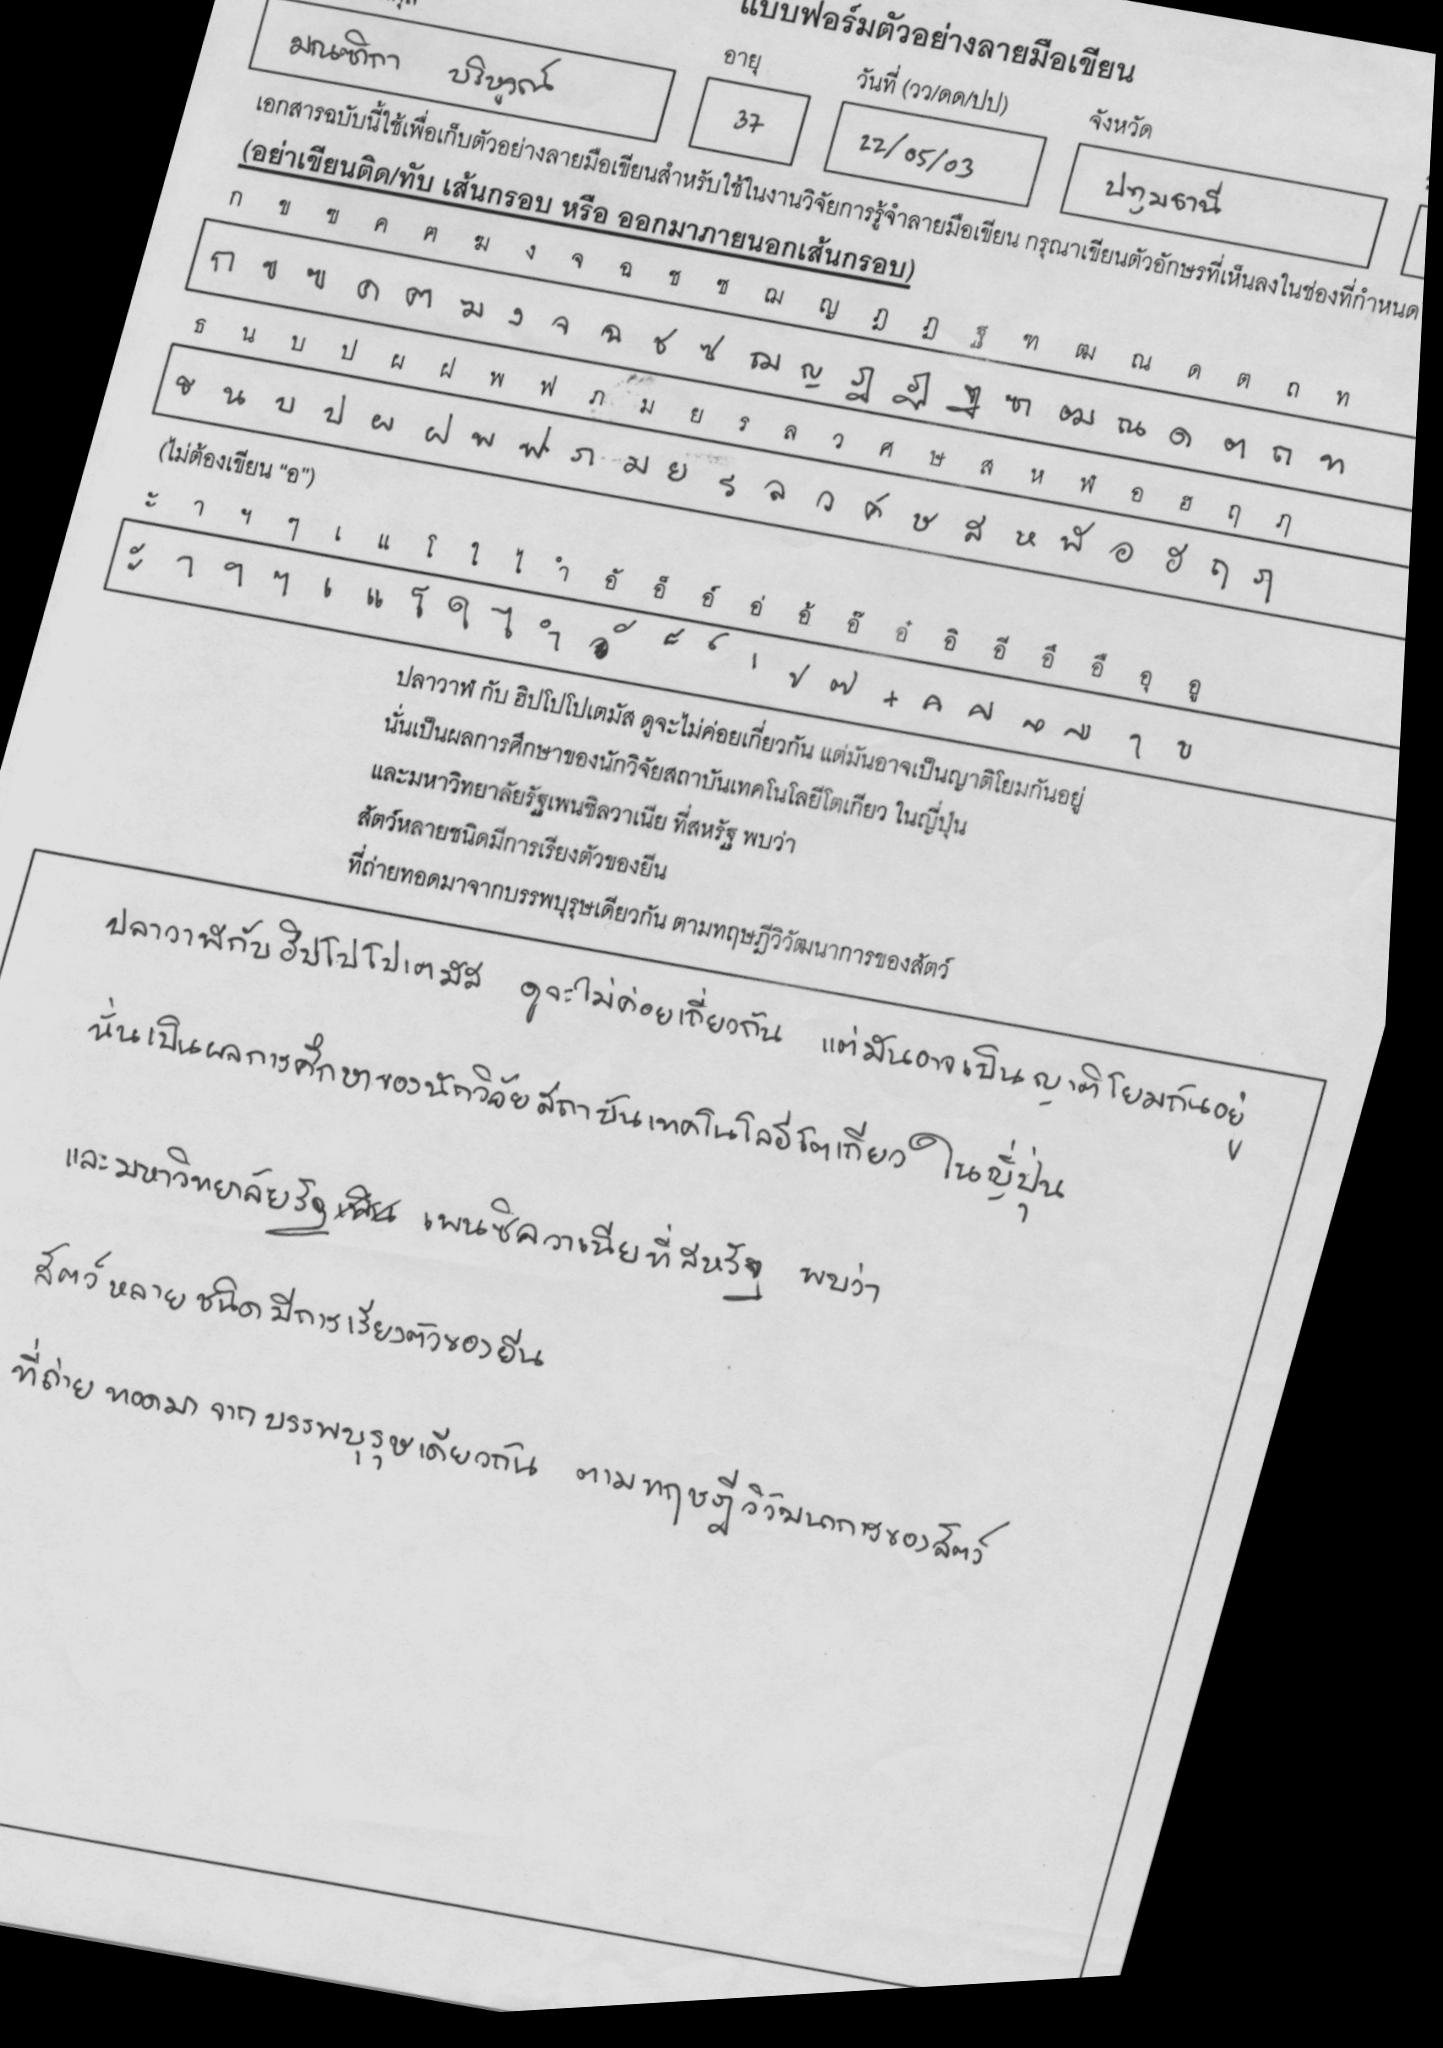 แบบฟอร์มตัวอย่างลายมือเขียน
อายุ วันที่ (วว/ดด/ปป) จังหวัด
37 22/05/03 ปทุมธานี
เอกสารฉบับนี้ใช้เพื่อเก็บตัวอย่างลายมือเขียนสำหรับใช้ในงานวิจัยการรู้จำลายมือเขียน กรุณาเขียนตัวอักษรที่เห็นลงในช่องที่กำหนด
(อย่าเขียนติด/ทับ เส้นกรอบ หรือ ออกมาภายนอกเส้นกรอบ)
ก ข ฃ ค ฅ ฆ ง จ ฉ ช ซ ฌ ญ ฎ ฏ ฐ ฑ ฒ ณ ด ต ถ ท
ก ข ฃ ค ฅ ฆ ง จ ฉ ช ซ ฌ ญ ฎ ฏ ฐ ฑ ฒ ณ ด ต ถ ท
ธ น บ ป ผ ฝ พ ฟ ภ ม ย ร ล ว ศ ษ ส ห ฬ อ ฮ ฤ ฦ
ธ น บ ป ผ ฝ พ ฟ ภ ม ย ร ล ว ศ ษ ส ห ฬ อ ฮ ฤ ฦ
(ไม่ต้องเขียน “อ”)
ะ า ฯ ๆ เ แ โ ใ ไ ำ อั อ็ อ์ อ่ อ้ อ๊ อ๋ อิ อี อึ อื อุ อู
ะ า ฯ ๆ เ แ โ ใ ไ ำ ั ็ ์ ่ ้ ๊ ๋ ิ ี ึ ื ุ ู
ปลาวาฬ กับ ฮิปโปโปเตมัส ดูจะไม่ค่อยเกี่ยวกัน แต่มันอาจเป็นญาติโยมกันอยู่
นั่นเป็นผลการศึกษาของนักวิจัยสถาบันเทคโนโลยีโตเกียว ในญี่ปุ่น
และมหาวิทยาลัยรัฐเพนซิลวาเนีย ที่สหรัฐ พบว่า
สัตว์หลายชนิดมีการเรียงตัวของยีน
ที่ถ่ายทอดมาจากบรรพบุรุษเดียวกัน ตามทฤษฎีวิวัฒนาการของสัตว์
ปลาวาฬกับฮิปโปโปเตมัส ดูจะไม่ค่อยเกี่ยวกัน แต่มันอาจเป็นญาติโยมกันอยู่
นั่นเป็นผลการศึกษาของนักวิจัยสถาบันเทคโนโลยีโตเกียว ในญี่ปุ่น
และมหาวิทยาลัยรัฐ เพนซิลวาเนียที่สหรัฐ พบว่า
สัตว์หลายชนิดมีการเรียงตัวของยีน
ที่ถ่ายทอดมาจากบรรพบุรุษเดียวกัน ตามทฤษฎีวิวัฒนาการของสัตว์